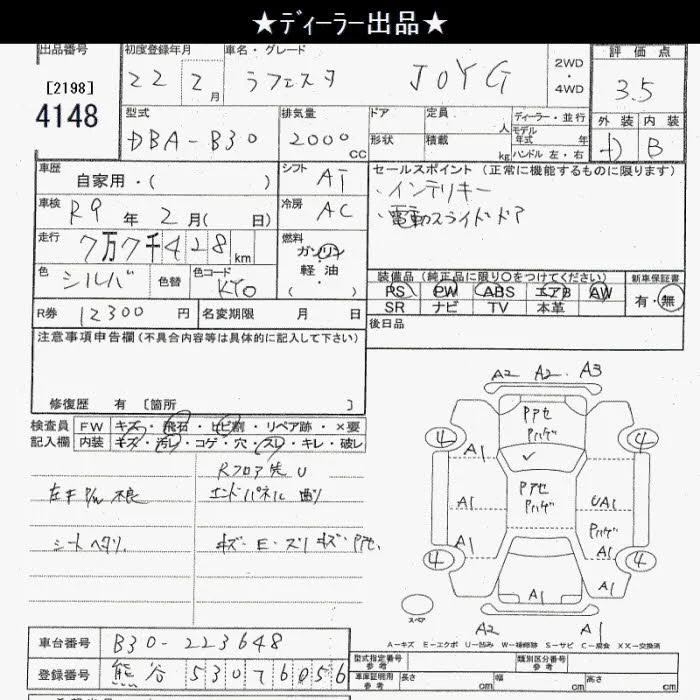 ★ディーラー出品★
出品番号 初度登録年月 車名・グレード 評価点
[2198] 22 2月 ラフェスタ JOYG 2WD・4WD 3.5
4148 型式 排気量 ドア 定員 人 ディーラー・並行 外装 内装
DBA-B30 2000cc 形状 積載 kg モデル年式 年 ハンドル 左・右 D B
車歴 自家用・( ) シフト AT セールスポイント (正常に機能するものに限ります)
車検 R9年2月( 日) 冷房 AC ・インテリキー
・電動スライドドア
走行 7万7千428km 燃料 ガソリン
軽油
( )
色 シルバ 色替 色コード KY0 装備品 (純正品に限り○をつけてください) 新車保証書
PS PW ABS エアB AW 有・無
SR ナビ TV 本革
R券 12300円 名変期限 月 日 後日品
注意事項申告欄 (不具合内容等は具体的に記入して下さい)
修復歴 有 [箇所 ]
検査員 FW キズ・飛石・ヒビ割・リペア跡・×要
記入欄 内装 キズ・汚レ・コゲ・穴・スレ・キレ・破レ
Rフロア先U
不良 エンドパネル
シートヘタリ キズ・E・スリキズ・Pアセ
A2 A2 A3
Pアセ
Pハゲ
4 4
A1 A1
Pアセ
Pハゲ
A1 UA1
Pハゲ
A1 A1
4 4
A1 A1
スペア
A2 A1
A-キズ E-エクボ U-凹み W-補修跡 S-サビ C-腐食 XX-交換済
車台番号 B30-223648
登録番号 熊谷 530 76056
型式指定番号 参考 類別区分番号 参考
車庫証明用 参考 長さ cm 幅 cm 高さ cm